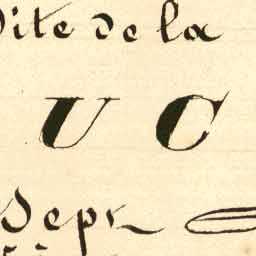 dite de la
U C
Depr